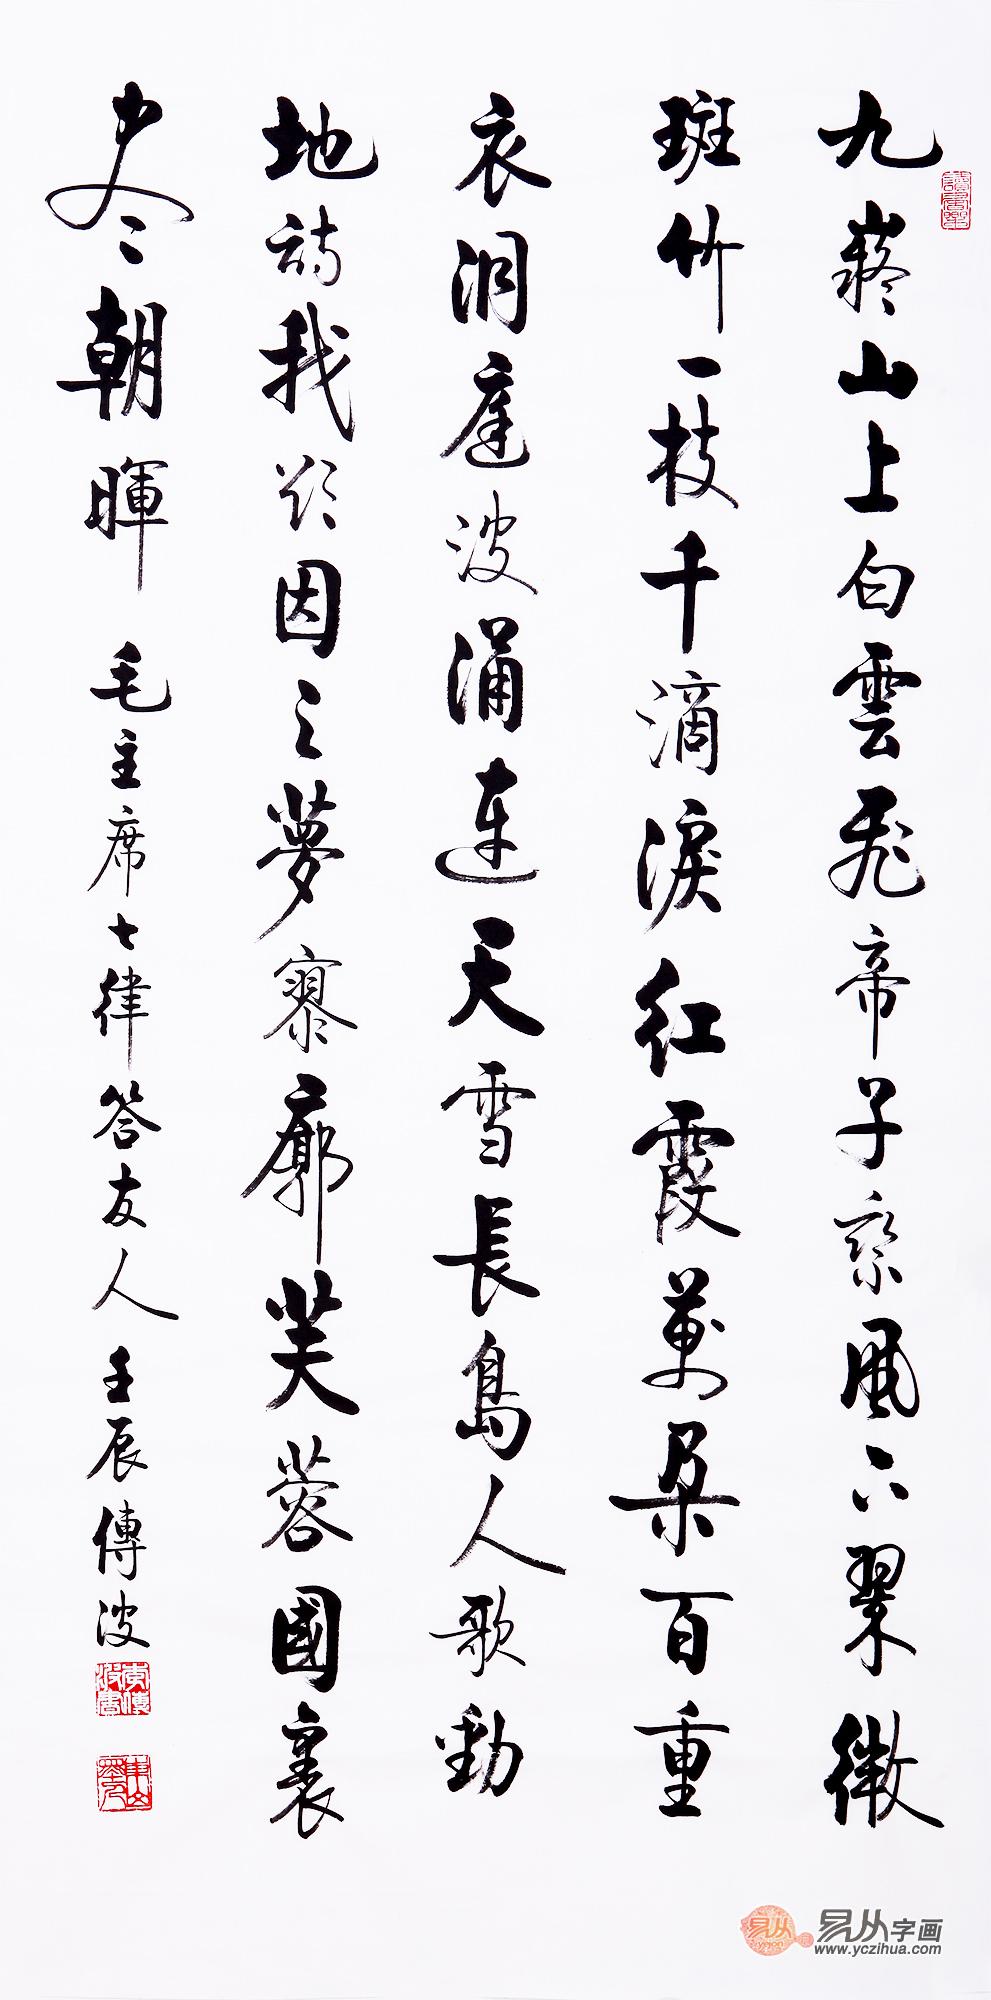 九嶷山上白雲飛帝子乘風下翠微
斑竹一枝千滴淚紅霞萬朵百重
衣洞庭波涌連天雪長島人歌動
地詩我欲因之夢寥廓芙蓉國裏
盡朝暉 毛主席七律答友人 壬辰傳波
易从字画
www.yczihua.com